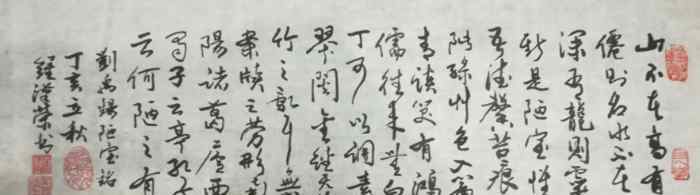 山不在高有
僊则名水不在
深有龍则靈
斯是陋室惟
吾德馨苔痕
階綠艸色入簾
青談笑有鴻
儒往来無白
丁可以調素
琴閱金經無
竹之亂耳無
案牘之勞形南
陽諸葛廬西
蜀子云亭孔子
云何陋之有
劉禹錫陋室銘
丁亥立秋
鍾漢榮书